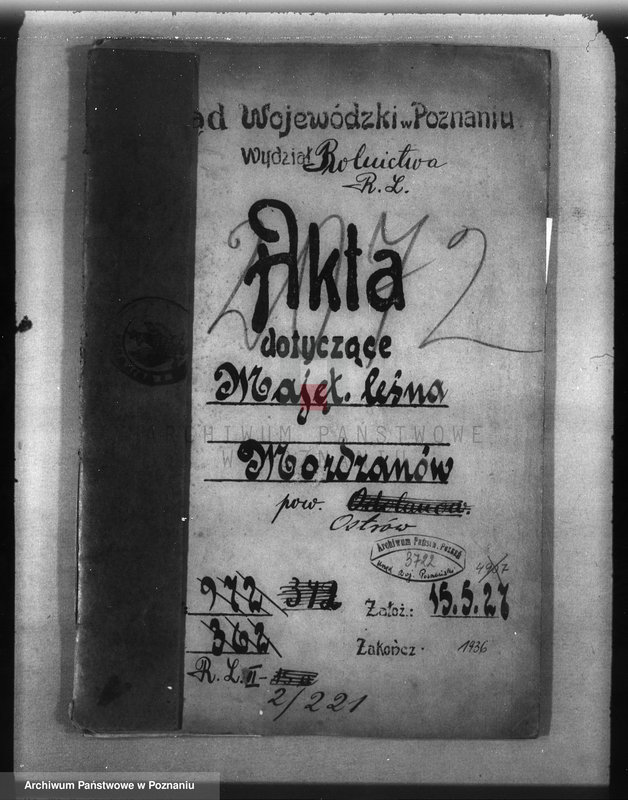 ąd Wojewódzki w Poznaniu
Wydział Rolnictwa
R. L.
2072
Akta
dotyczące
Majęt. leśna
ARCHIWUM PAŃSTWOWE
W POZNANIU
Mordzanów
pow. Odolanów.
Ostrów
Archiwum Państw. Poznań
3722
Urząd Woj. Poznański
4967
972 372
Założ.: 15.5.27
362
Zakończ. 1936
R. L. II-
2/221
Archiwum Państwowe w Poznaniu